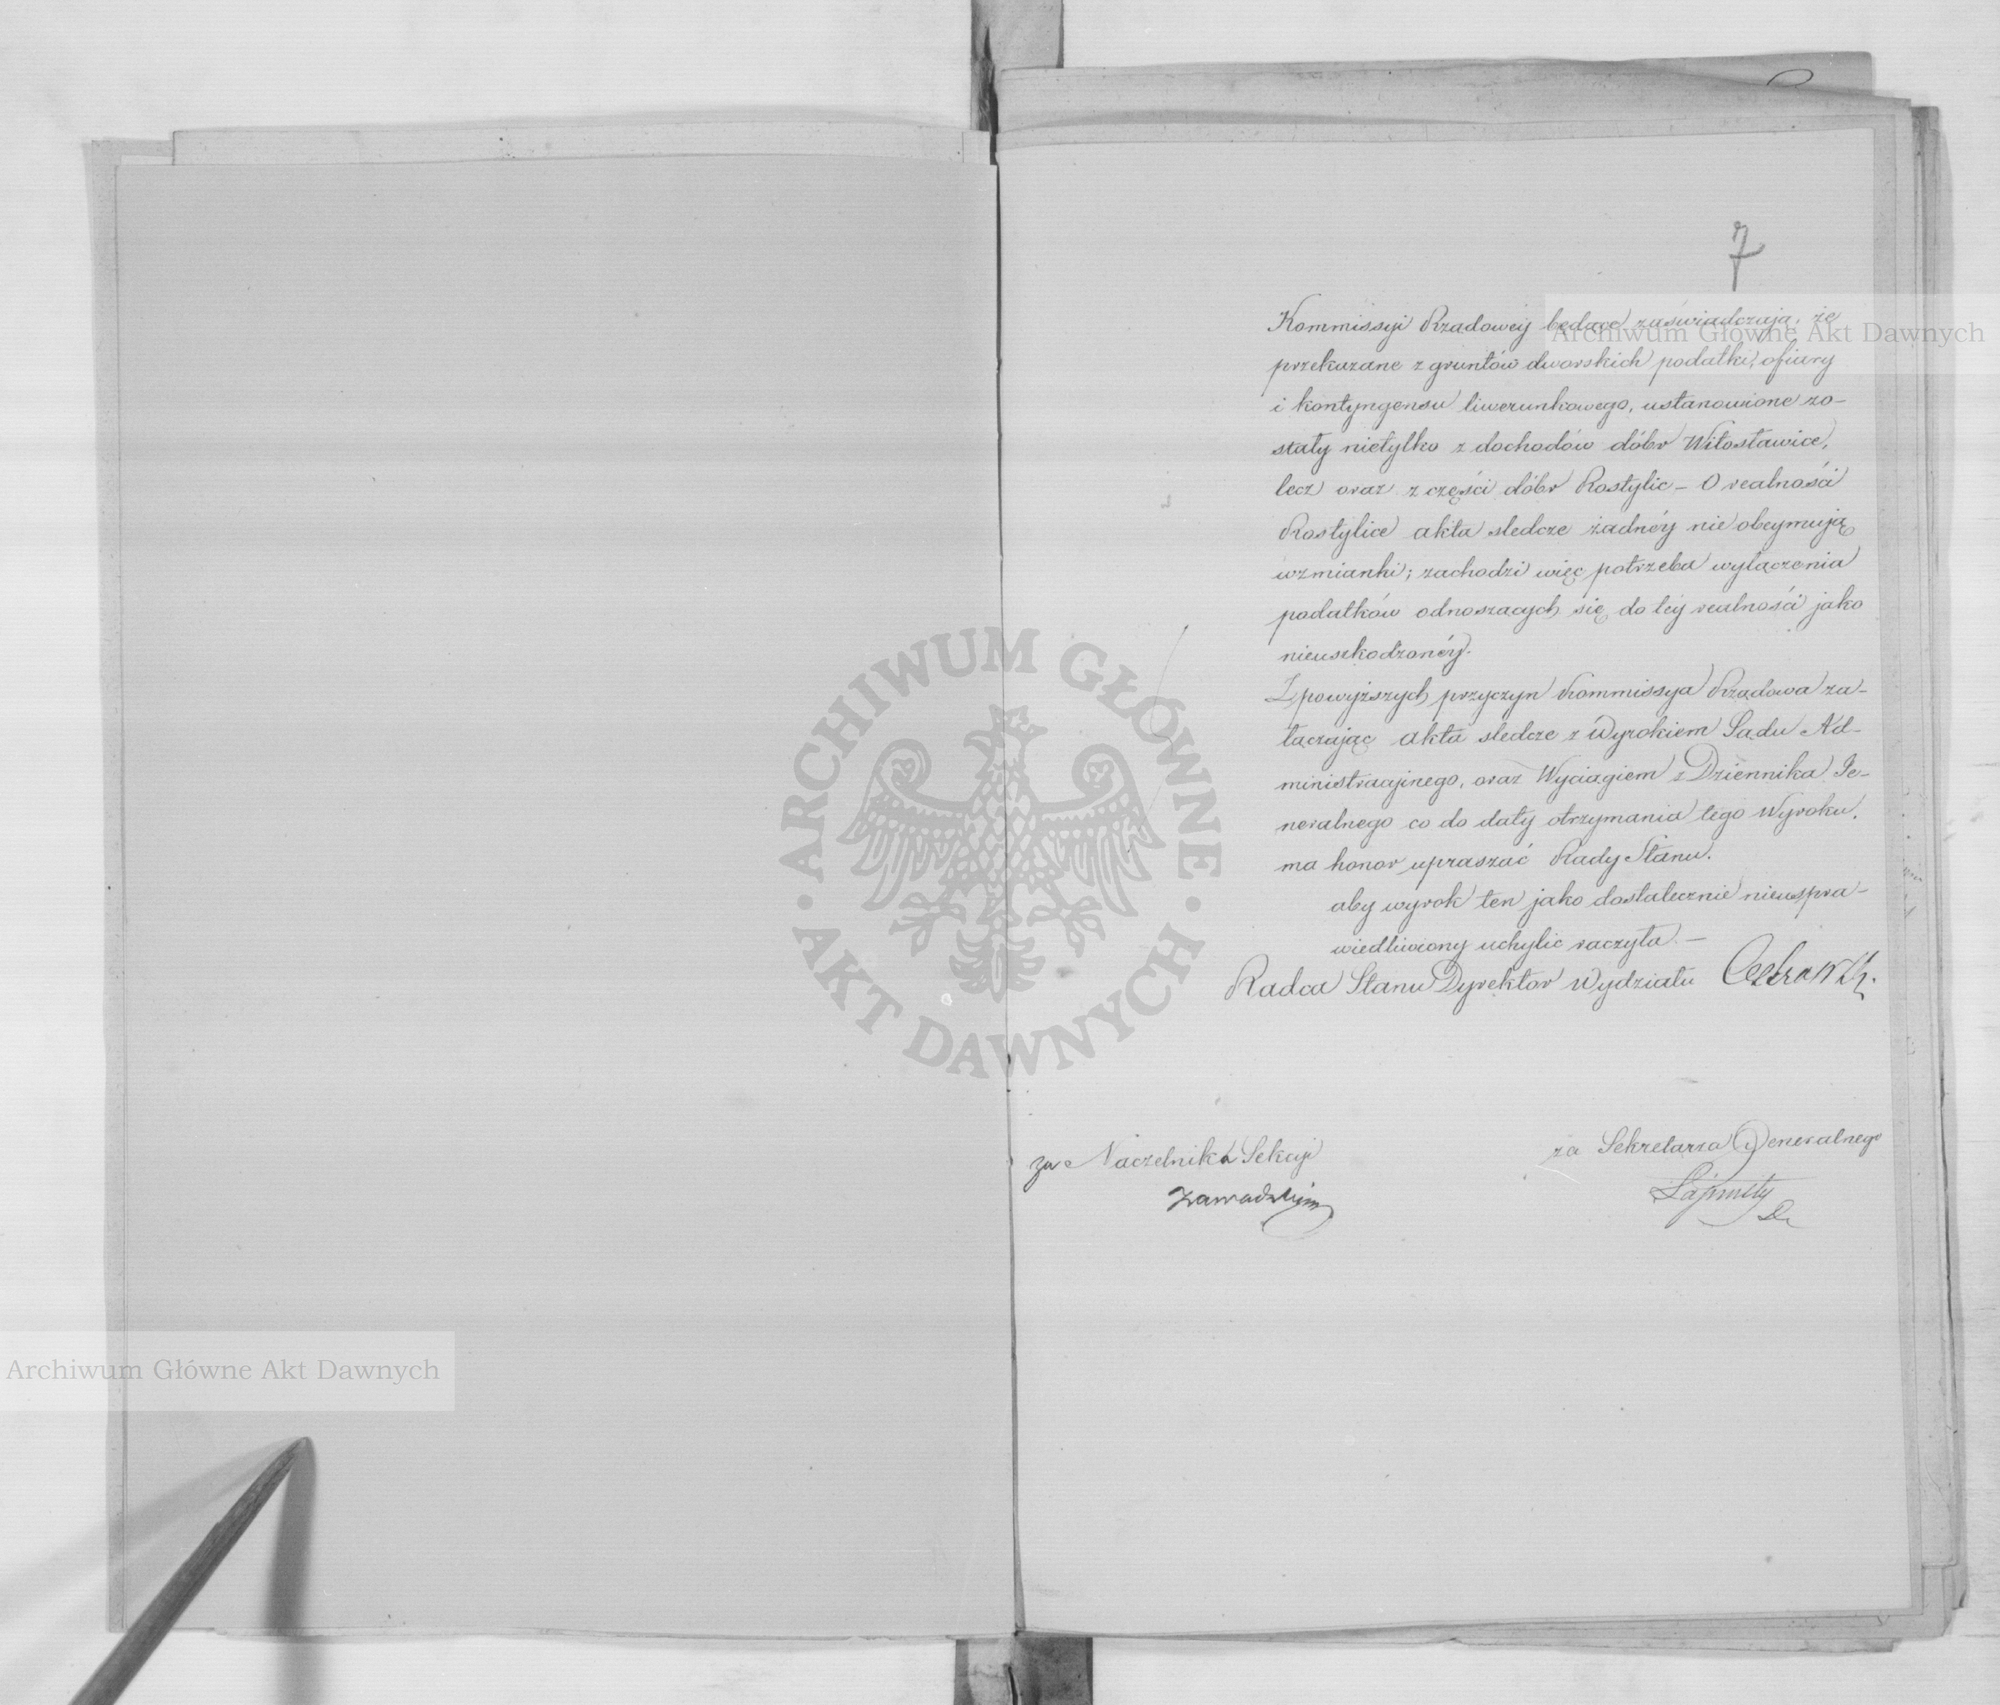 7
Kommissyi Rządowey będące zaświadczają, że
Archiwum Główne Akt Dawnych
przekazane z gruntów dworskich podatki, ofiary
i kontyngensu liwerunkowego, ustanowione zo-
stały nietylko z dochodów dóbr Witosławice,
lecz oraz z części dóbr Rostylic – O realności
Rostylice akta sledcze żadnéy nie obeymują
wzmianki; zachodzi więc potrzeba wyłączenia
podatków odnoszących się do tey realności jako
nieuszkodzonéy.
Z powyższych przyczyn Kommissya Rządowa za-
łączając akta sledcze z Wyrokiem Sądu Ad-
ministracyjnego, oraz Wyciągiem z Dziennika Je-
neralnego co do daty otrzymania tego Wyroku,
ma honor upraszać Rady Stanu.
aby wyrok ten jako dostatecznie nieuspra-
wiedliwiony uchylić raczyła. –
Radca Stanu Dyrektor Wydziału
za Naczelnika Sekcyi
za Sekretarza Generalnego
ARCHIWUM GŁÓWNE
AKT DAWNYCH
Archiwum Główne Akt Dawnych